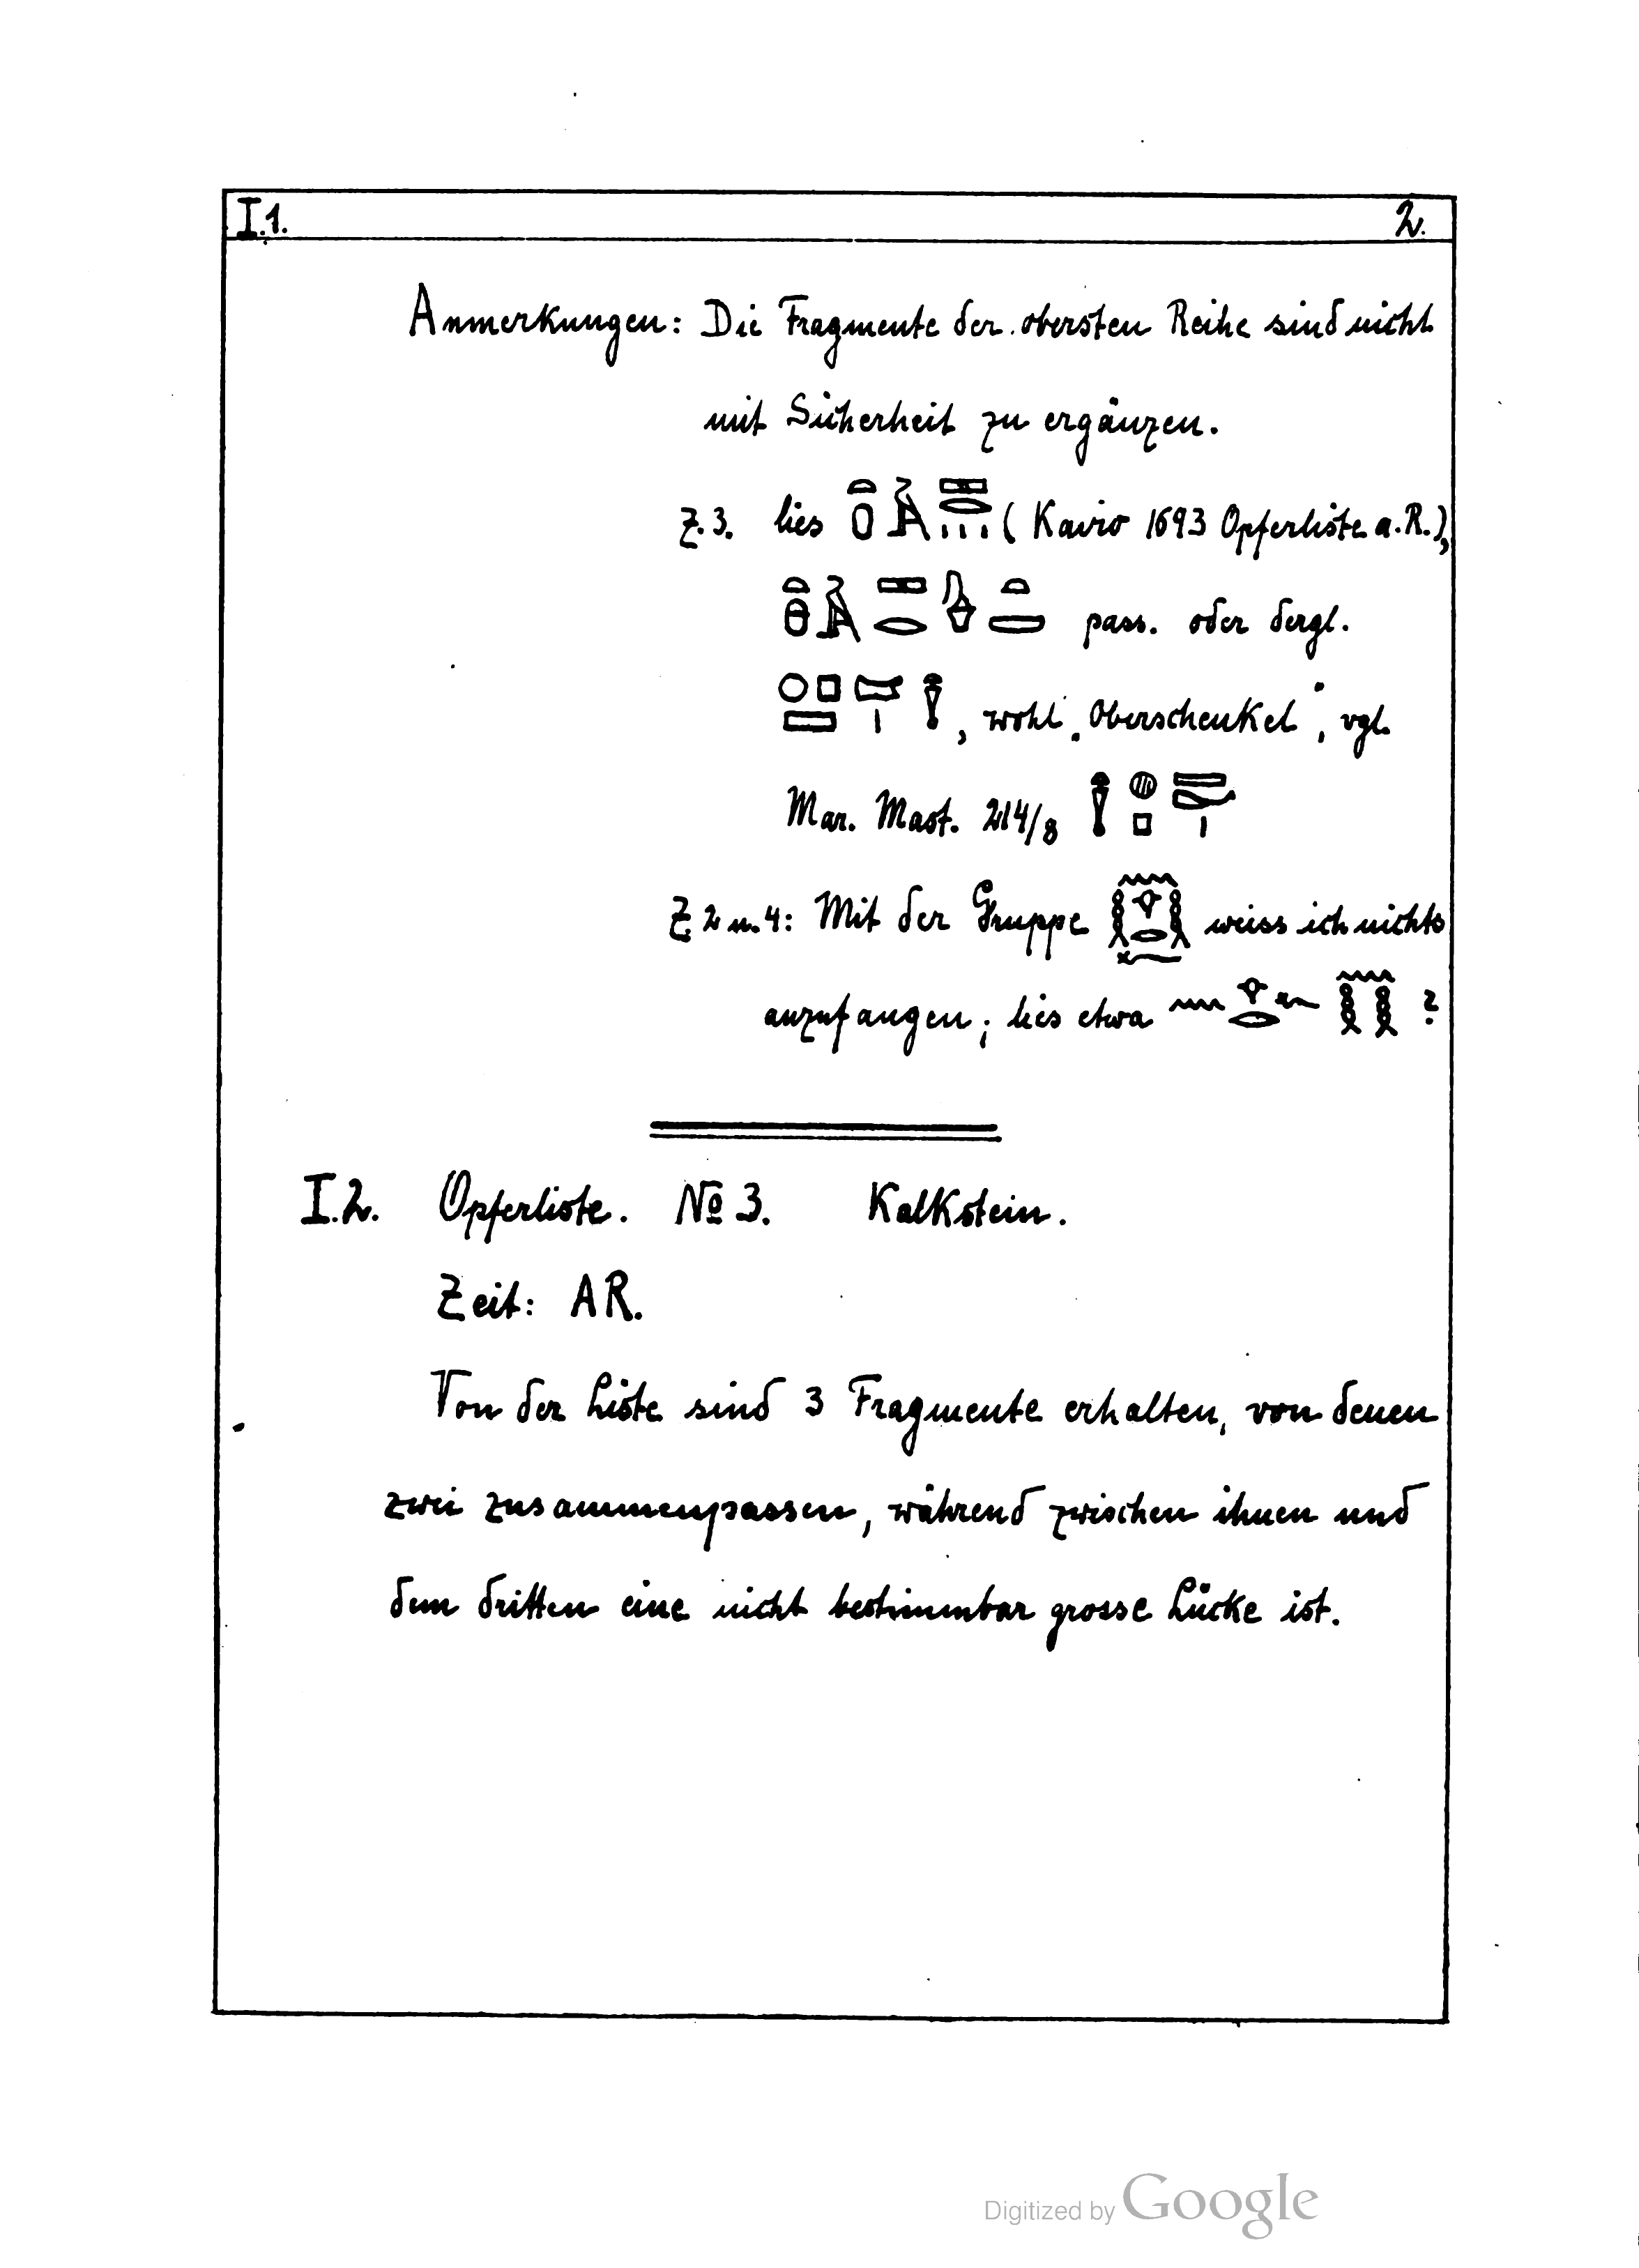 I.1. 2.
Anmerkungen: Die Fragmente der obersten Reihe sind nicht
mit Sicherheit zu ergänzen.
Z. 3. lies ( Kairo 1693 Opferliste a. R.),
pass. oder dergl.
, wohl „Oberschenkel“, vgl.
Mar. Mast. 214/8
Z 2 u. 4: Mit der Gruppe weiss ich nichts
anzufangen; lies etwa ?
I.2. Opferliste. No 3. Kalkstein.
Zeit: AR.
Von der Liste sind 3 Fragmente erhalten, von denen
zwei zusammenpassen, während zwischen ihnen und
dem dritten eine nicht bestimmbar grosse Lücke ist.
Digitized by Google